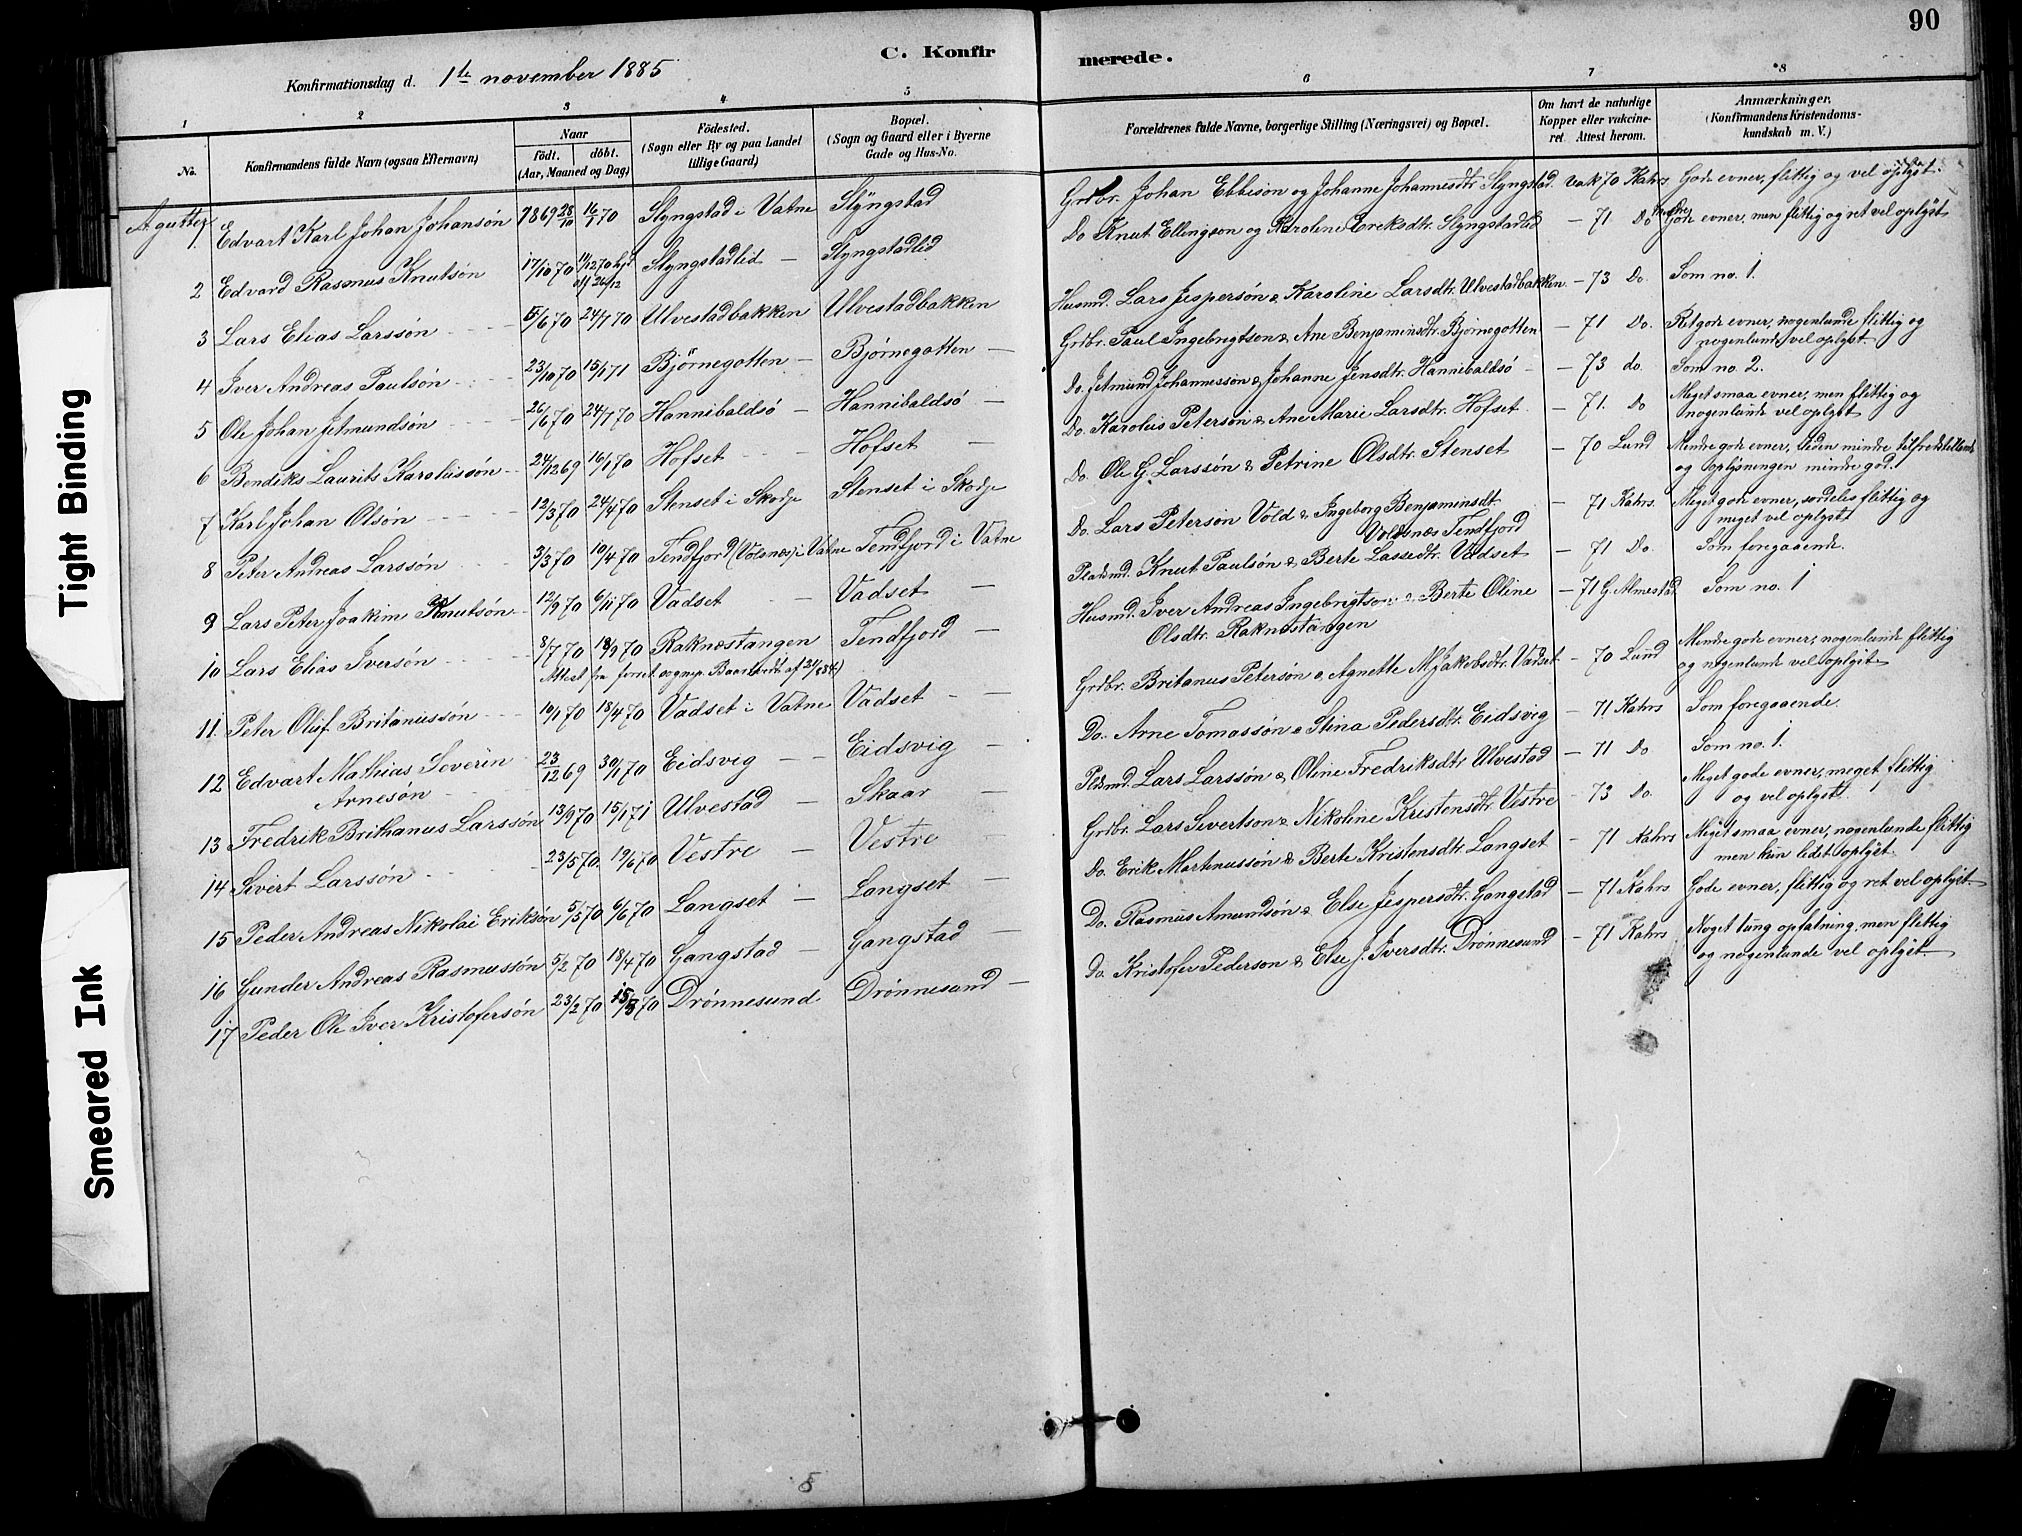 90
C. Konfirmerede.
Konfirmationsdag d. 1te november 1885
1 2 3 4 5 6 7 8
No.
Konfirmandens fulde Navn (ogsaa Efternavn)
Naar
födt. döbt.
(Aar, Maaned og Dag)
Födested.
(Sogn eller By og paa Landet
tillige Gaard)
Bopæl.
(Sogn og Gaard eller i Byerne
Gade og Hus-No.
Forældrenes fulde Navne, borgerlige Stilling (Næringsvei) og Bopæl.
Om havt de naturlige
Kopper eller vakcine-
ret. Attest herom.
Anmærkninger.
(Konfirmandens Kristendoms-
kundskab m. V.)
A. gutter
1 Edvart Karl Johan Johansön 1869 28/10 16/1 70 Slyngstad i Vatne Slyngstad Grdbr. Johan Ebbesön og Johanne Johannesdtr Slyngstad. vak 70 Kahrs Gode evner, flittig og vel oplyst.
2 Edvard Rasmus Knutsön 17/10 70 Slyngstadlid — Slyngstadlid Do Knut Ellingson og Karoline Eriksdtr Slyngstadlid — 71 Do Mindre gode evner, men flittig og ret vel oplyst
3 Lars Elias Larssön 5/6 70 24/7 70 Ulvestadbakken Ulvestadbakken Husmd. Lars Jespersön & Karoline Larsdtr. Ulvestadbakken — 73 Do. Som no. 1.
4 Iver Andreas Paulsön 23/10 70 15/1 71 Björnegotten — Björnegotten — Grdbr. Paul Ingebrigtson & Ane Benjaminsdtr. Björnegotten — 71 Do. Ret gode evner, nogenlunde flittig og
nogenlunde vel oplyst.
5 Ole Johan Jetmundsön 26/6 70 24/7 70 Hannibaldsö — Hannibaldsö — Do. Jetmund Johannessön & Johanne Jensdtr. Hannibaldsö — 73 do. Som no 2.
6 Bendiks Laurits Karoliussön 24/12 69 16/1 70 Hofset Hofset — Do. Karolius Petersön & Ane Marie Larsdtr. Hofset — 71. Do Meget smaa evner, men flittig og
nogenlunde vel oplyst
7 Karl Johan Olsön 12/3 70 24/4 70 Stenset i Skodje Stenset i Skodje Do. Ole G. Larssön & Petrine Olsdtr. Stenset — 70 Lund Mindre gode evner, fliden mindre tilfredstillende
og oplysningen mindre god.
8 Peter Andreas Larssön 3/3 70 10/4 70 Tendfjord (Volsnes) i Vatne Tendfjord i Vatne Do. Lars Petersön Vold & Ingeborg Benjaminsdt.
Voldsnes Tendfjord — 71 Kahrs. Meget gode evner, særdeles flittig og
meget vel oplyst
9 Lars Peter Joakim Knutsön 12/9 70 6/11 70 Vadset — Vadset — Pladsmd. Knut Paulsön & Berte Lassedtr. Vadset — 71 Do. Som foregaaende.
10 Lars Elias Iversön 8/7 70 18/9 70 Raknestangen Tendfjord — Husmd. Iver Andreas Ingebrigtson & Berte Oline
Olsdtr. Raknestangen — 71 G. Almestad Som no. 1
11 Peter Oluf Britaniussön 10/1 70 18/4 70 Vadset i Vatne Vadset — Grdbr. Britanus Petersön & Agnette M. Jakobsdtr. Vadset — 70 Lund Mindre gode evner, nogenlunde flittig
og nogenlunde vel oplyst
12 Edvart Mathias Severin
Arnesön 23/12 69 30/1 70 Eidsvig — Eidsvig — Do. Arne Tomassön & Stina Pedersdtr. Eidsvig — 71 Kahrs Som foregaaende.
13 Fredrik Brithanus Larssön 13/9 70 15/1 71 Ulvestad — Skaar — Pldsmd. Lars Larssön & Oline Fredriksdtr. Ulvestad — 71 Do Som no. 1.
14 Sivert Larssön 23/5 70 19/6 70 Vestre — Vestre — Grdbr. Lars Sivertson & Nikoline Kristensdtr. Vestre — 73 Do. Meget gode evner, meget flittig
og vel oplyst.
15 Peder Andreas Nikolai Eriksön 5/5 70 6/6 70 Langset — Langset — Do. Erik Martinussön & Berte Kristensdtr. Langset — 71 Kahrs Meget smaa evner, nogenlunde flittig
men kun lidet oplyst.
16 Gunder Andreas Rasmussön 5/2 70 18/4 70 Gangstad — Gangstad — Do. Rasmus Amundsön & Else Jespersdtr. Gangstad — 71 Kahrs. Gode evner, flittig og ret vel oplyst
17 Peder Ole Iver Kristofersön 23/2 70 Drönnesund Drönnesund — Do. Kristofer Pederson & Else J. Iversdtr. Drönnesund — 71 Kahrs Noget tung opfatning, men flittig
og nogenlunde vel oplyst.
Tight Binding
Smeared Ink